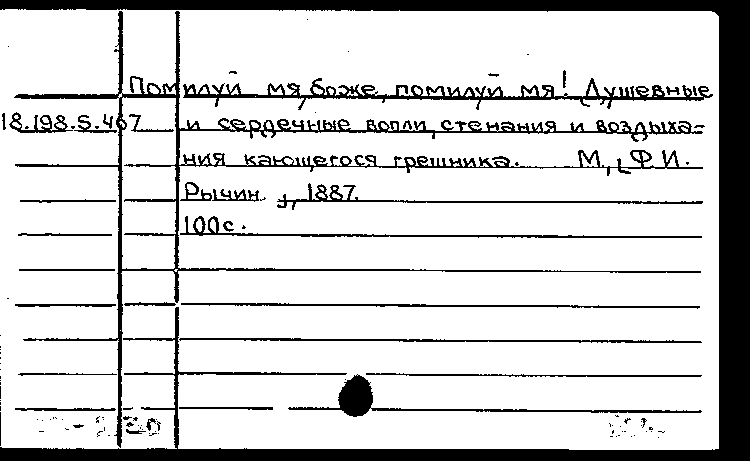 Помилуй мя, боже, помилуй мя! Душевные
18.198.5.467 и сердечные вопли, стенания и воздыха=
ния кающегося грешника. М., [Ф.И.
Рычин], 1887.
100с.